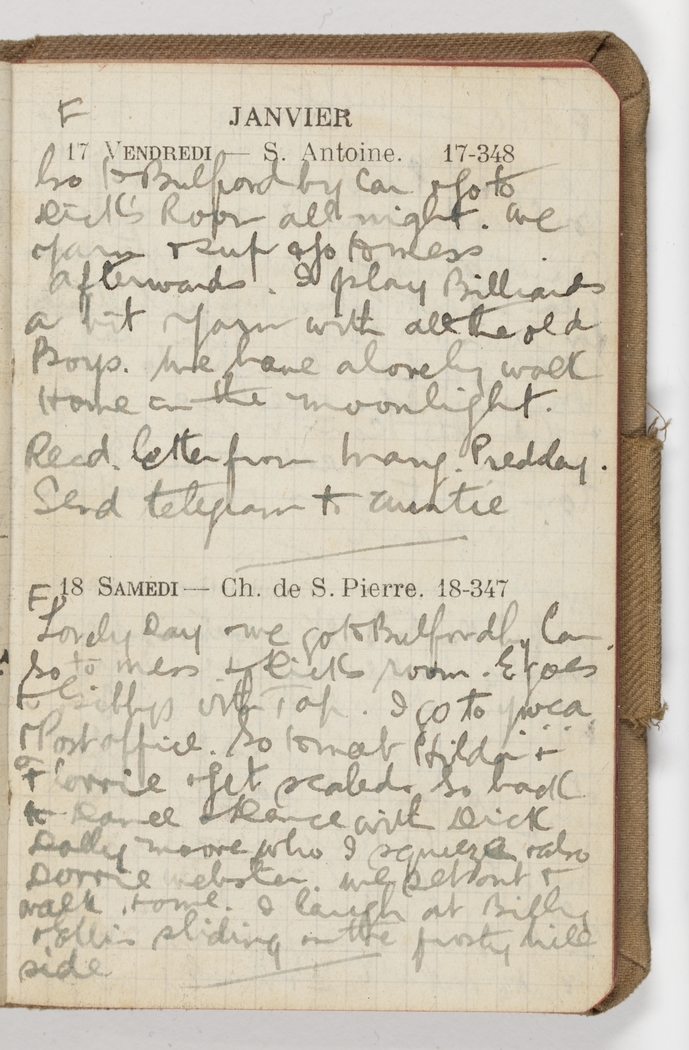 F
JANVIER
17 VENDREDI — S. Antoine. 17-348
Go to Bulford by Car & go to
Dick's Room all night. We
yarn & sup & go to mess
afterwards. I play Billiards
a bit & yarn with all the old
Boys. We have a lovely walk
Home in the moonlight.
Recd. letter from Predday.
Send telegram to Auntie
F
18 SAMEDI — Ch. de S. Pierre. 18-347
Lovely Day & we go to Bulford by Car.
Go to mess & Dicks room. E goes
to with Tap. I go to ymca
& Post office. Go to meet Hilda &
Corrie & get scaled. Go back
to Dance & Dance with Dick
Dolly Moore who I squeeze & also
Dorrie Webster. We set out &
walk Home. I laugh at Billy
& Ellis sliding on the frosty hill
side